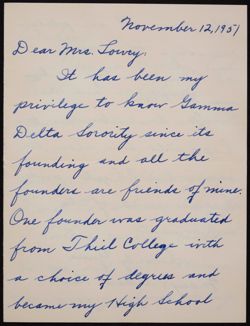 November 12, 1951
Dear Mrs. Lowry,
It has been my
privilege to know Gamma
Delta Sorority since its
founding and all the
founders are friends of mine.
One founder was graduated
from Thiel College with
a choice of degrees and
became my High School